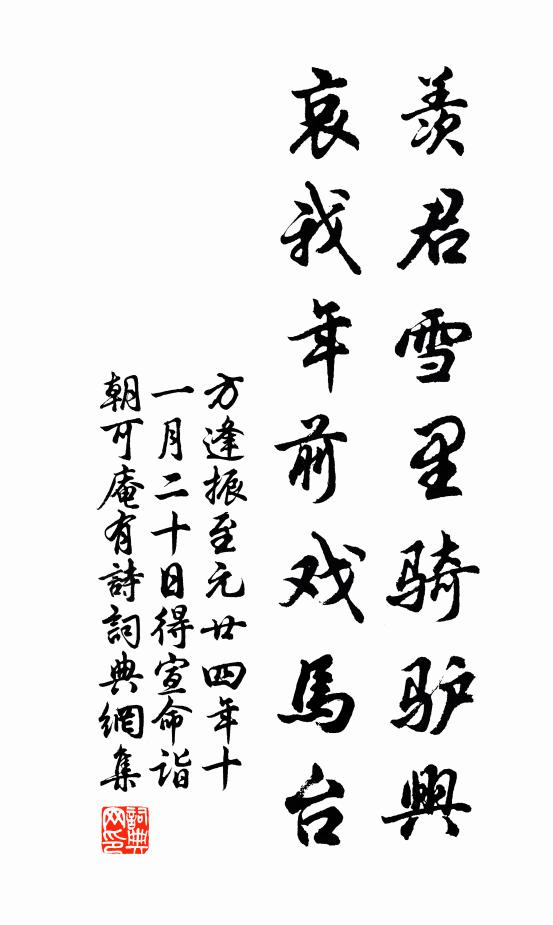 羨君雪里骑驴興
哀我年前戏馬台
方逢振至元廿四年十
一月二十日得宣命詣
朝可庵有詩詞典網集
詞典网印